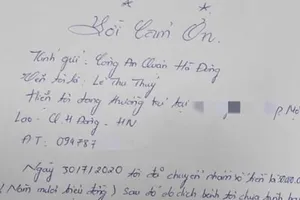 Lời Cảm Ơn.
Kính gửi: Công An Quận Hà Đông
Tên tôi là: Lê Thu Thuỷ
Hiện tôi đang thường trú tại
- Q.H Đông - HN
ĐT: 094787
Ngày 30/7/2020 tôi đã chuyển nhầm số tiền là
(Năm mươi triệu đồng) sau đó do dịch bệnh tôi chưa